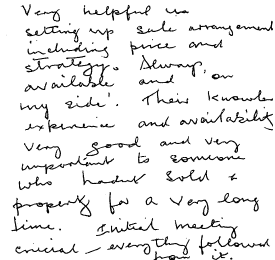 Very helpful in
setting up sale arrangement
including price and
strategy. Always,
available and, on
my side'. Their knowled
experience and availability
very good and very
important to someone
who hadnt sold a
property for a very long
time. Initial meeting
crucial – everything followed
from it.